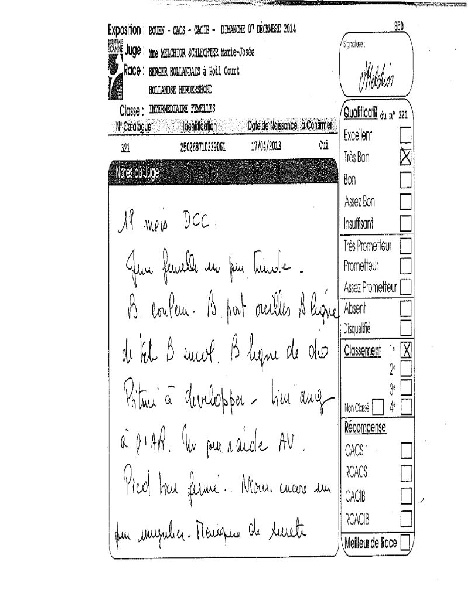 Exposition ROUEN - CACS - CACIB - DIMANCHE 07 DÉCEMBRE 2014
Juge Mme MELCHIOR SCHLECHTER Marie-Josée
Race : BERGER HOLLANDAIS à Poil Court
HOLLANDSE HERDERSHOND
Classe : INTERMEDIAIRE FEMELLES
N° Catalogue Identification Date de Naissance à Confirmer
321 /04/2013 Oui
Notes du Juge
19 mois DCC.
Jeune femelle un peu timide.
B couleur. B port oreilles B ligne
de tête B encol. B ligne de dos
Poitrail à développer - bien ang
à l'AR. Un peu raide AV.
Pied bien fermé. Mouv. encore un
peu irrégulier. Manque de sureté
Signature :
Qualificatif du n° 321
Excellent
Très Bon X
Bon
Assez Bon
Insuffisant
Très Prometteur
Prometteur
Assez Prometteur
Absent
Disqualifié
Classement 1° X
2°
3°
Non Classé 4°
Récompense
CACS
RCACS
CACIB
RCACIB
Meilleur de Race